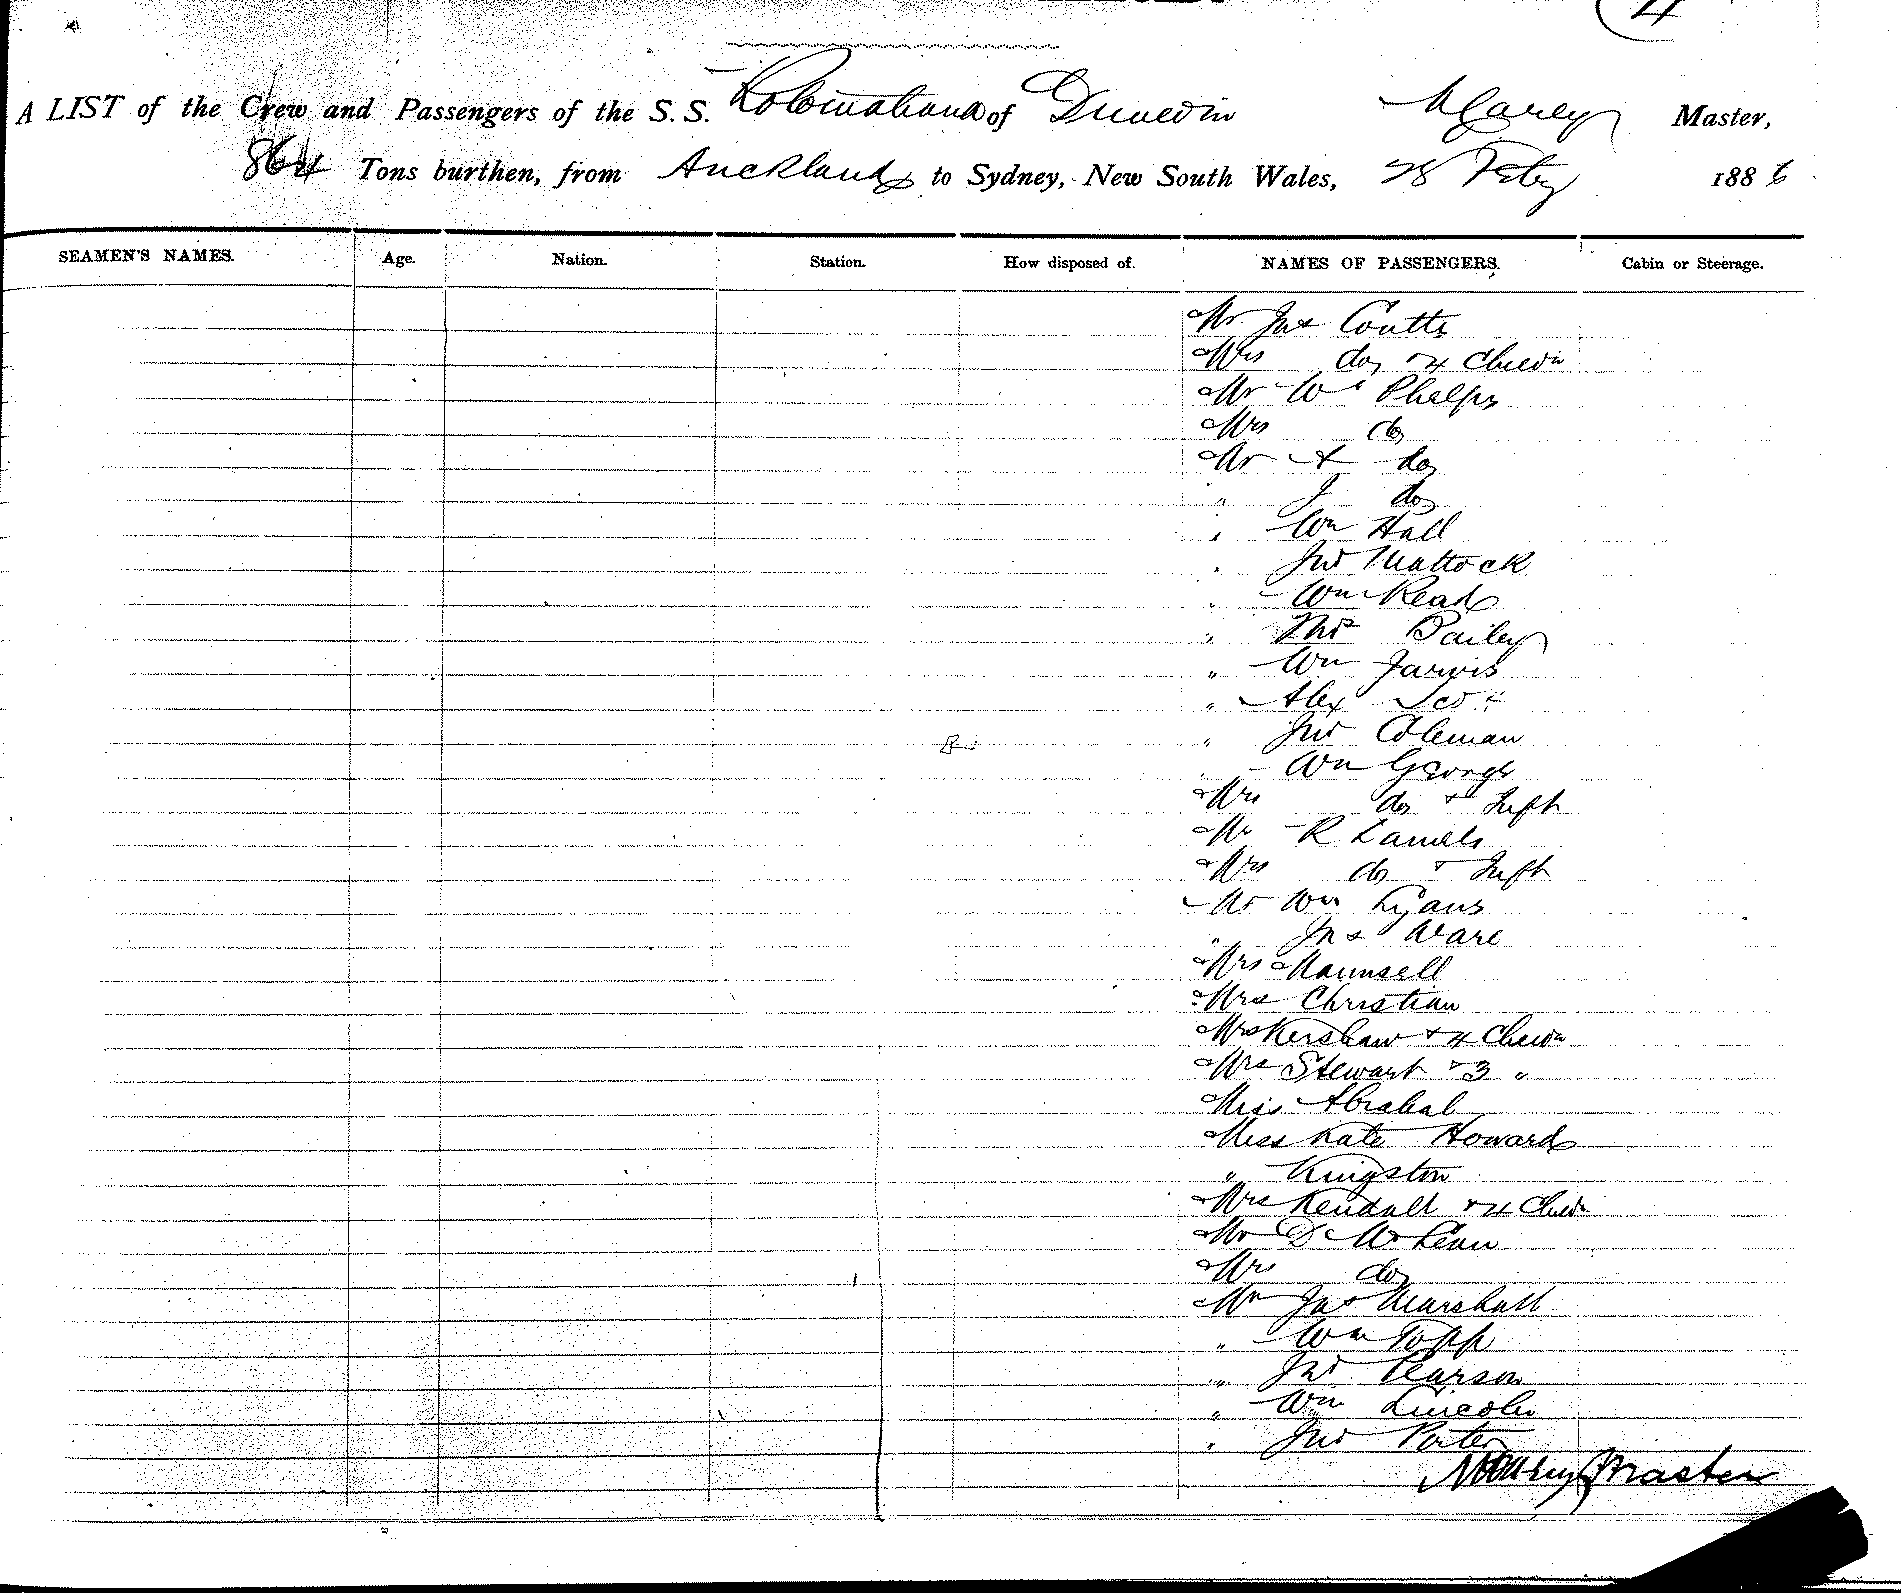 4
A LIST of the Crew and Passengers of the S. S. Rotomahana of Dunedin M Carey Master,
864 Tons burthen, from Auckland to Sydney, New South Wales, 28 Feby 1886
SEAMEN'S NAMES. Age. Nation. Station. How disposed of. NAMES OF PASSENGERS. Cabin or Steerage.
Mr Jas Coutts
Mrs do & 4 Childn
Mr Wm Phelps
Mrs do
Mr A do
" J do
" Wm Hall
" Jno Mattock
" Wm Read
" Thos Bailey
" Wm Jarvis
" Alex Scott
" Jno Coleman
" Wm George
Mrs do & Inft
Mr R Daniels
Mrs do & Inft
Mr Wm Lyans
" Jas Ware
Mrs Maunsell
Mrs Christian
Mrs Kershaw & 4 Childn
Mrs Stewart & 3 "
Miss
Miss Kate Howard
" Kingston
Mrs Kendall & 4 Childn
Mr D McLean
Mrs do
Mr Jas Marshall
" Wm Topp
" Jno Pearson
" Wm Lincoln
" Jno Porter
M Carey Master